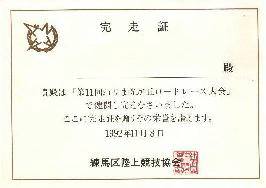 完走証
殿
貴殿は「第11回 ロードレース大会」
で健闘し完走なさいました。
ここに完走証を贈りその栄誉を讃えます。
1992年11月3日
練馬区陸上競技協会